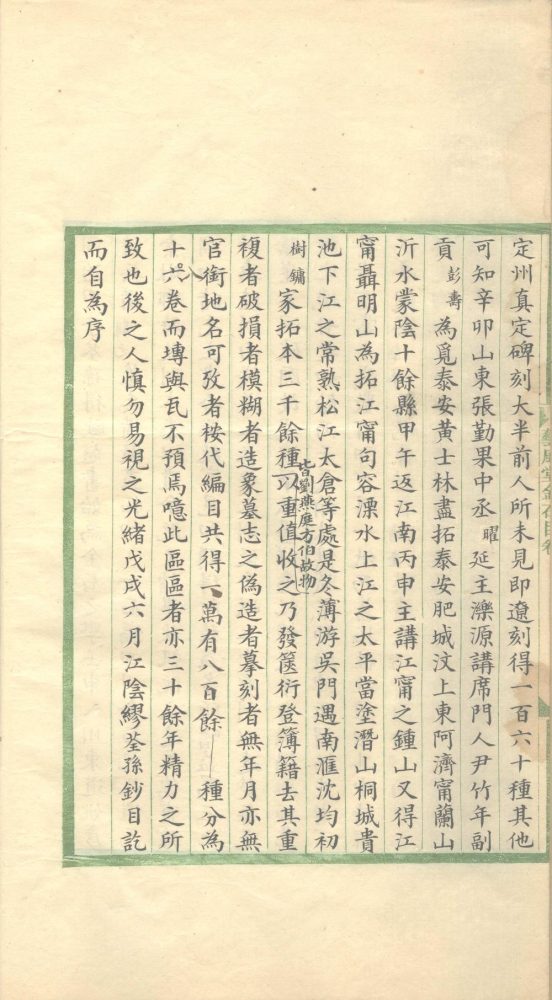 定州真定碑刻大半前人所未見即遼刻得一百六十種其他
可知辛卯山東張勤果中丞曜延主濼源講席門人尹竹年副
貢彭壽為覓泰安黃士林盡拓泰安肥城汶上東阿濟甯蘭山
沂水蒙陰十餘縣甲午返江南丙申主講江甯之鍾山又得江
甯聶明山為拓江甯句容溧水上江之太平當塗潛山桐城貴
池下江之常熟松江太倉等處是冬薄游吳門遇南滙沈均初
樹鏞家拓本三千餘種皆劉燕庭方伯故物以重值收之乃發篋衍登簿籍去其重
複者破損者模糊者造象墓志之偽造者摹刻者無年月亦無
官銜地名可攷者桉代編目共得一萬有八百餘種分為
十八卷而塼與瓦不預焉噫此區區者亦三十餘年精力之所
致也後之人慎勿易視之光緒戊戌六月江陰繆荃孫鈔目訖
而自為序